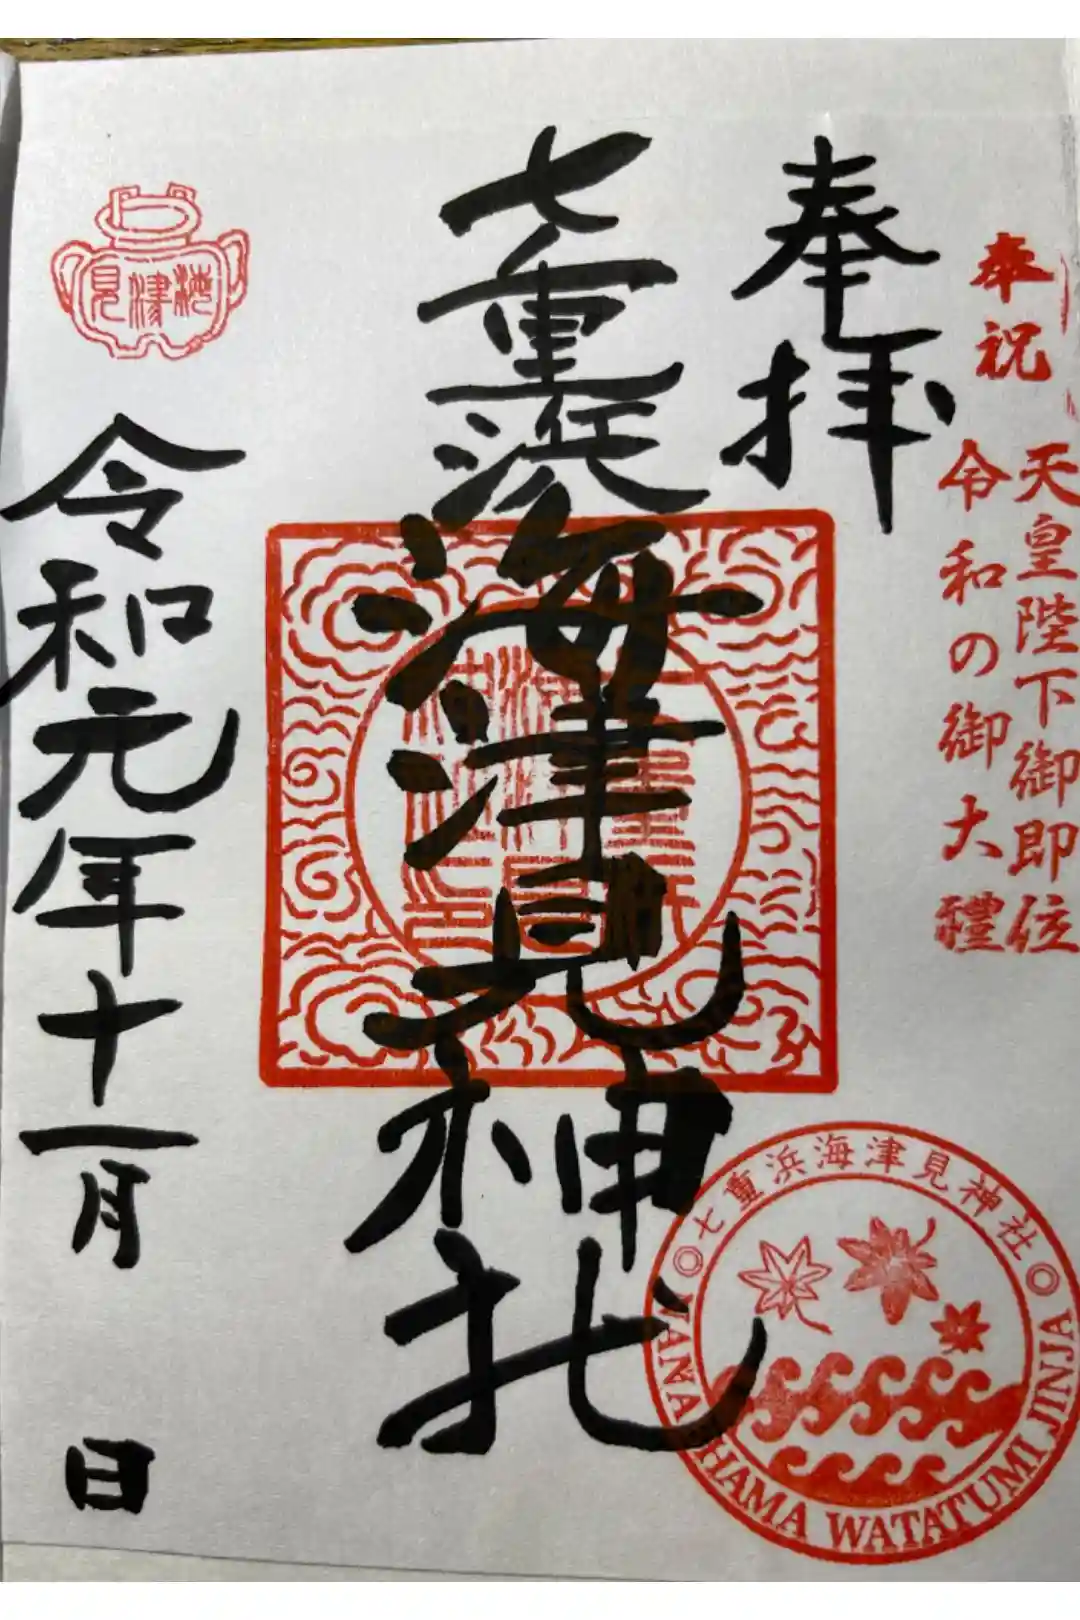 奉祝
天皇陛下御即位
令和の御大禮
奉拝
七重浜海津見神社
令和元年十一月 日
海津見
◎七重浜海津見神社◎
NANAEHAMA WATATUMI JINJA